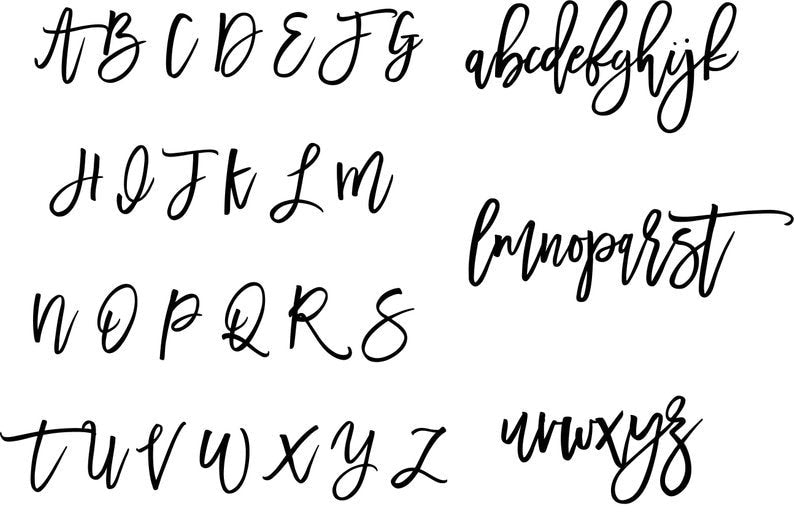 A B C D E F G
H I J K L M
N O P Q R S
T U V W X Y Z
abcdefghijk
lmnoparst
uvwxyz